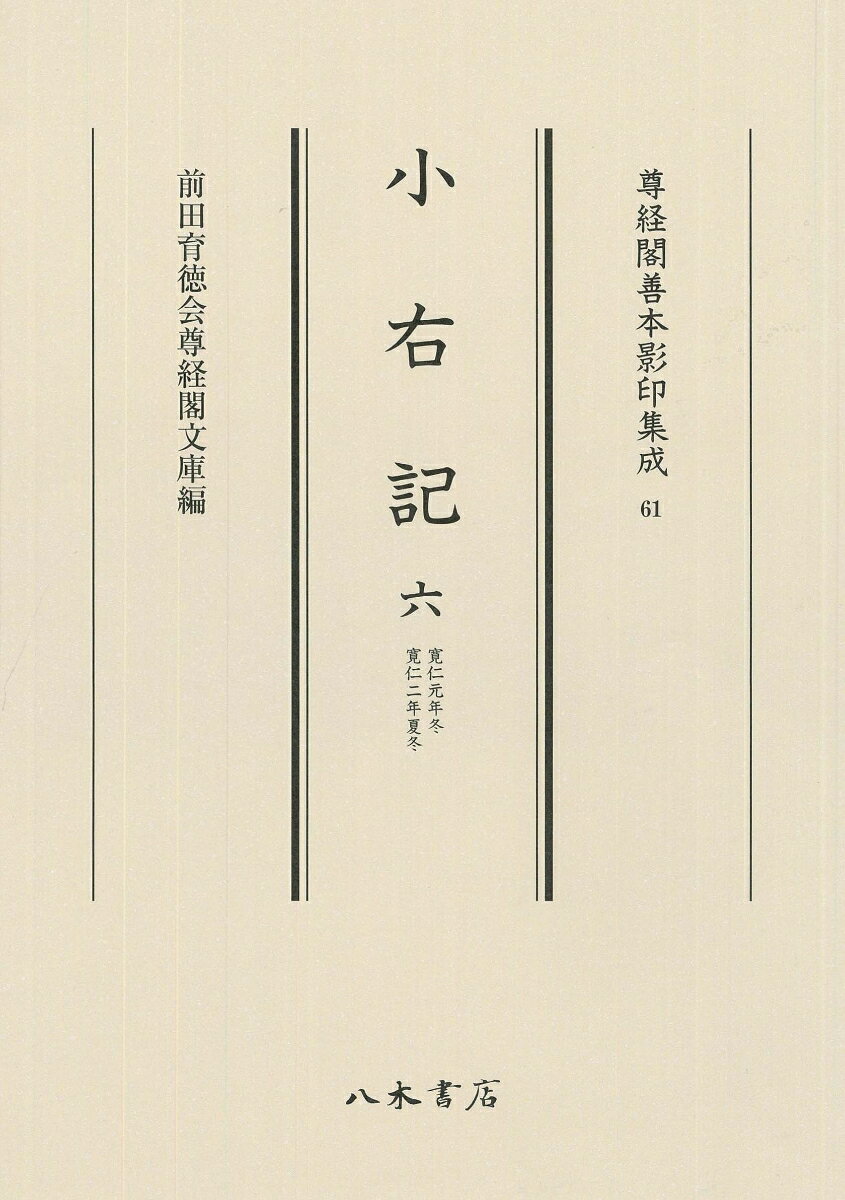 尊経閣善本影印集成 61
小右記 六
寛仁元年冬
寛仁二年夏冬
前田育徳会尊経閣文庫編
八木書店